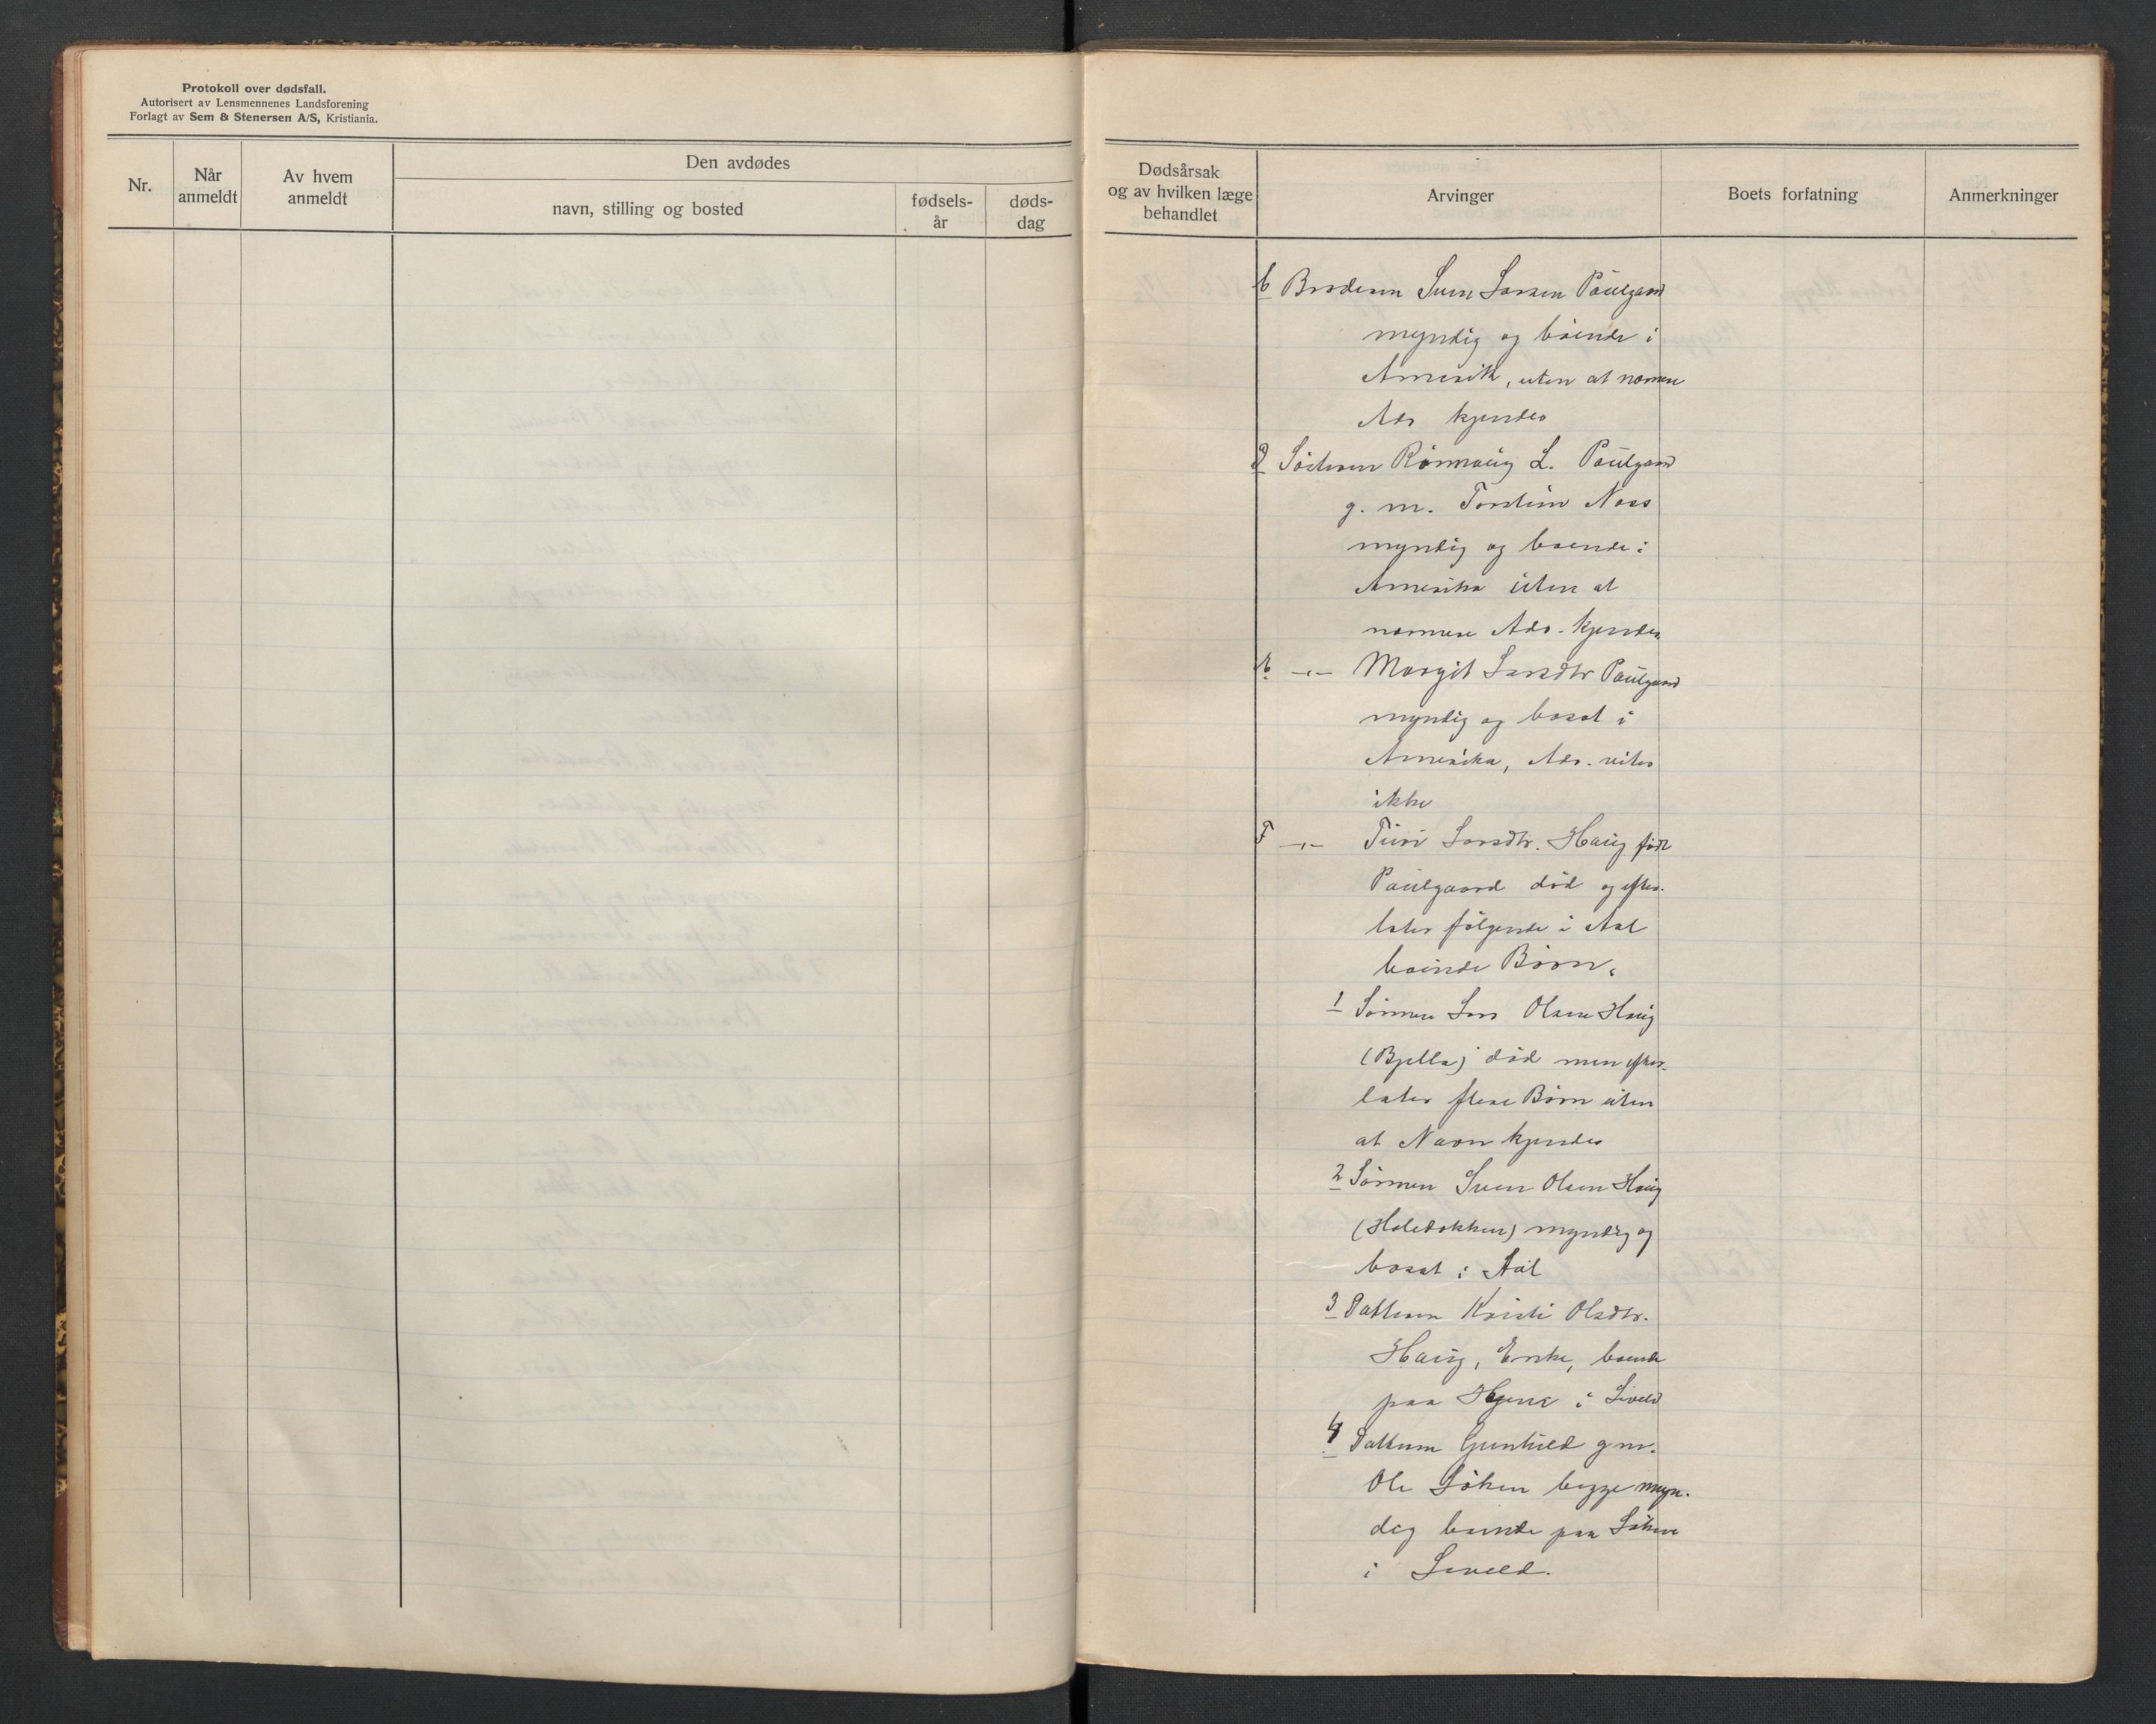 Protokoll over dødsfall.
Autorisert av Lensmennenes Landsforening
Forlagt av Sem & Stenersen A/S, Kristiania.
Nr.
Når anmeldt
Av hvem anmeldt
Den avdødes
navn, stilling og bosted
fødsels-år
døds-dag
Dødsårsak
og av hvilken læge
behandlet
Arvinger
Boets forfatning
Anmerkninger
C Broderen Sven Larsen Paulgaard
myndig og boende i
Amerik, uten at nærmere
Adr kjendes
D Søsteren Rønnaug L. Paulgaard
g. m. Torstein Næss
myndig og boende i
Amerika uten at
nærmere Adr. kjendes
E -"- Margit Larsdtr Paulgaard
myndig og bosat i
Amerika, Adr. vites
ikke
F -"- Turi Larsdtr. Haug født
Paulgaard død og efter-
later følgende i Aal
boende Børn.
1 Sønnen Lars Olsen Haug
(Bjella) død men efter-
later flere Børn uten
at Navn kjendes
2 Sønnen Sven Olsen Haug
(Holedokken) myndig og
bosat i Aal
3 Datteren Kristi Olsdtr.
Haug, Enke, boende
paa i Leveld
4 Datteren Gunhild gm.
Ole Løken begge myn-
dig boende paa Løken
i Leveld.